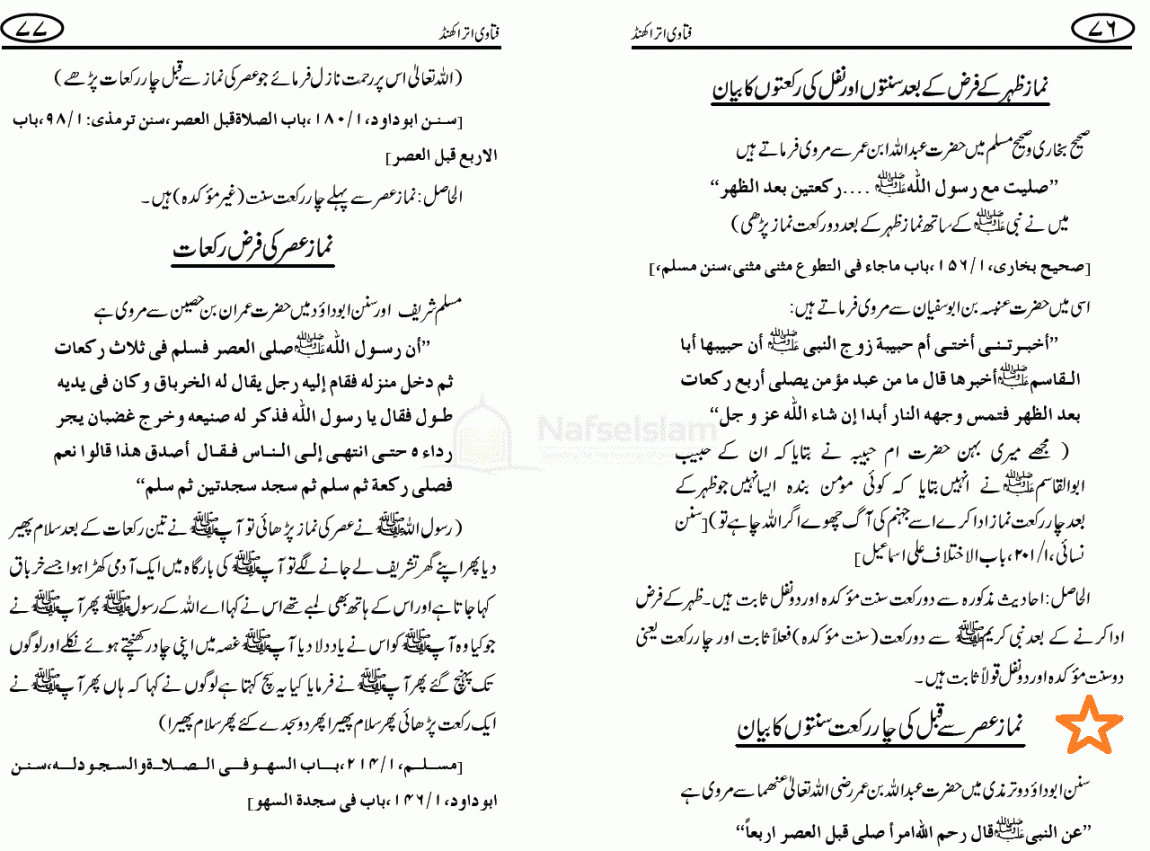 ۷۶
فتاوی اتراکھنڈ
نماز ظہر کے فرض کے بعد سنتوں اور نفل کی رکعتوں کا بیان
صحیح بخاری و صحیح مسلم میں حضرت عبداللہ ابن عمر سے مروی فرماتے ہیں
”صلیت مع رسول اللہ ﷺ ....رکعتین بعد الظھر“
میں نے نبی ﷺ کے ساتھ نماز ظہر کے بعد دو رکعت نماز پڑھی)
[صحیح بخاری،۱/۱۵۶،باب ماجاء فی التطوع مثنی مثنی،سنن مسلم،]
اسی میں حضرت عنبسہ بن ابو سفیان سے مروی فرماتے ہیں:
”أخبرتنی أختی أم حبیبة زوج النبی ﷺ أن حبیبھا أبا
القاسم ﷺ أخبرھا قال ما من عبد مؤمن یصلی أربع رکعات
بعد الظھر فتمس وجھه النار أبدا إن شاء اللہ عز و جل“
( مجھے میری بہن حضرت ام حبیبہ نے بتایا کہ ان کے حبیب
ابوالقاسم ﷺ نے انہیں بتایا کہ کوئی مؤمن بندہ ایسا نہیں جو ظہر کے
بعد چار رکعت نماز ادا کرے اسے جہنم کی آگ چھوے اگر اللہ چاہے تو)[سنن
نسائی،۱/۲۰۱،باب الاختلاف علی اسماعیل]
الحاصل: احادیث مذکورہ سے دو رکعت سنت مؤکدہ اور دو نفل ثابت ہیں۔ ظہر کے فرض
ادا کرنے کے بعد نبی کریم ﷺ سے دو رکعت (سنت مؤکدہ) فعلاً ثابت اور چار رکعت یعنی
دو سنت مؤکدہ اور دو نفل قولاً ثابت ہیں۔
نماز عصر سے قبل کی چار رکعت سنتوں کا بیان
سنن ابوداؤد و ترمذی میں حضرت عبداللہ بن عمر رضی اللہ تعالیٰ عنھما سے مروی ہے
”عن النبی ﷺ قال رحم اللہ امرأ صلی قبل العصر اربعاً“
۷۷
فتاوی اتراکھنڈ
(اللہ تعالیٰ اس پر رحمت نازل فرمائے جو عصر کی نماز سے قبل چار رکعات پڑھے)
[سنن ابو داود،۱/۱۸۰،باب الصلاة قبل العصر،سنن ترمذی:۱/۹۸،باب
الاربع قبل العصر]
الحاصل: نماز عصر سے پہلے چار رکعت سنت (غیر مؤکدہ) ہیں۔
نماز عصر کی فرض رکعات
مسلم شریف اور سنن ابوداؤد میں حضرت عمران بن حصین سے مروی ہے
”أن رسول اللہ ﷺ صلی العصر فسلم فی ثلاث رکعات
ثم دخل منزله فقام إلیه رجل یقال له الخرباق وکان فی یدیه
طول فقال یا رسول اللہ فذکر له صنیعه وخرج غضبان یجر
رداءہ حتی انتھی إلی الناس فقال أصدق ھذا قالوا نعم
فصلی رکعة ثم سلم ثم سجد سجدتین ثم سلم“
(رسول اللہ ﷺ نے عصر کی نماز پڑھائی تو آپ ﷺ نے تین رکعات کے بعد سلام پھیر
دیا پھر اپنے گھر تشریف لے جانے لگے تو آپ ﷺ کی بارگاہ میں ایک آدمی کھڑا ہوا جسے خرباق
کہا جاتا ہے اور اس کے ہاتھ بھی لمبے تھے اس نے کہا اے اللہ کے رسول ﷺ پھر آپ ﷺ نے
جو کیا وہ آپ ﷺ کو اس نے یاد دلا دیا آپ ﷺ غصہ میں اپنی چادر کھنچتے ہوئے نکلے اور لوگوں
تک پہنچ گئے پھر آپ ﷺ نے فرمایا کیا یہ سچ کہتا ہے لوگوں نے کہا کہ ہاں پھر آپ ﷺ نے
ایک رکعت پڑھائی پھر سلام پھیرا پھر دو سجدے کئے پھر سلام پھیرا)
[مسلم،۱/۲۱۴،باب السھو فی الصلاة والسجود له،سنن
ابو داود،۱/۱۴۶،باب فی سجدة السھو]
NafseIslam